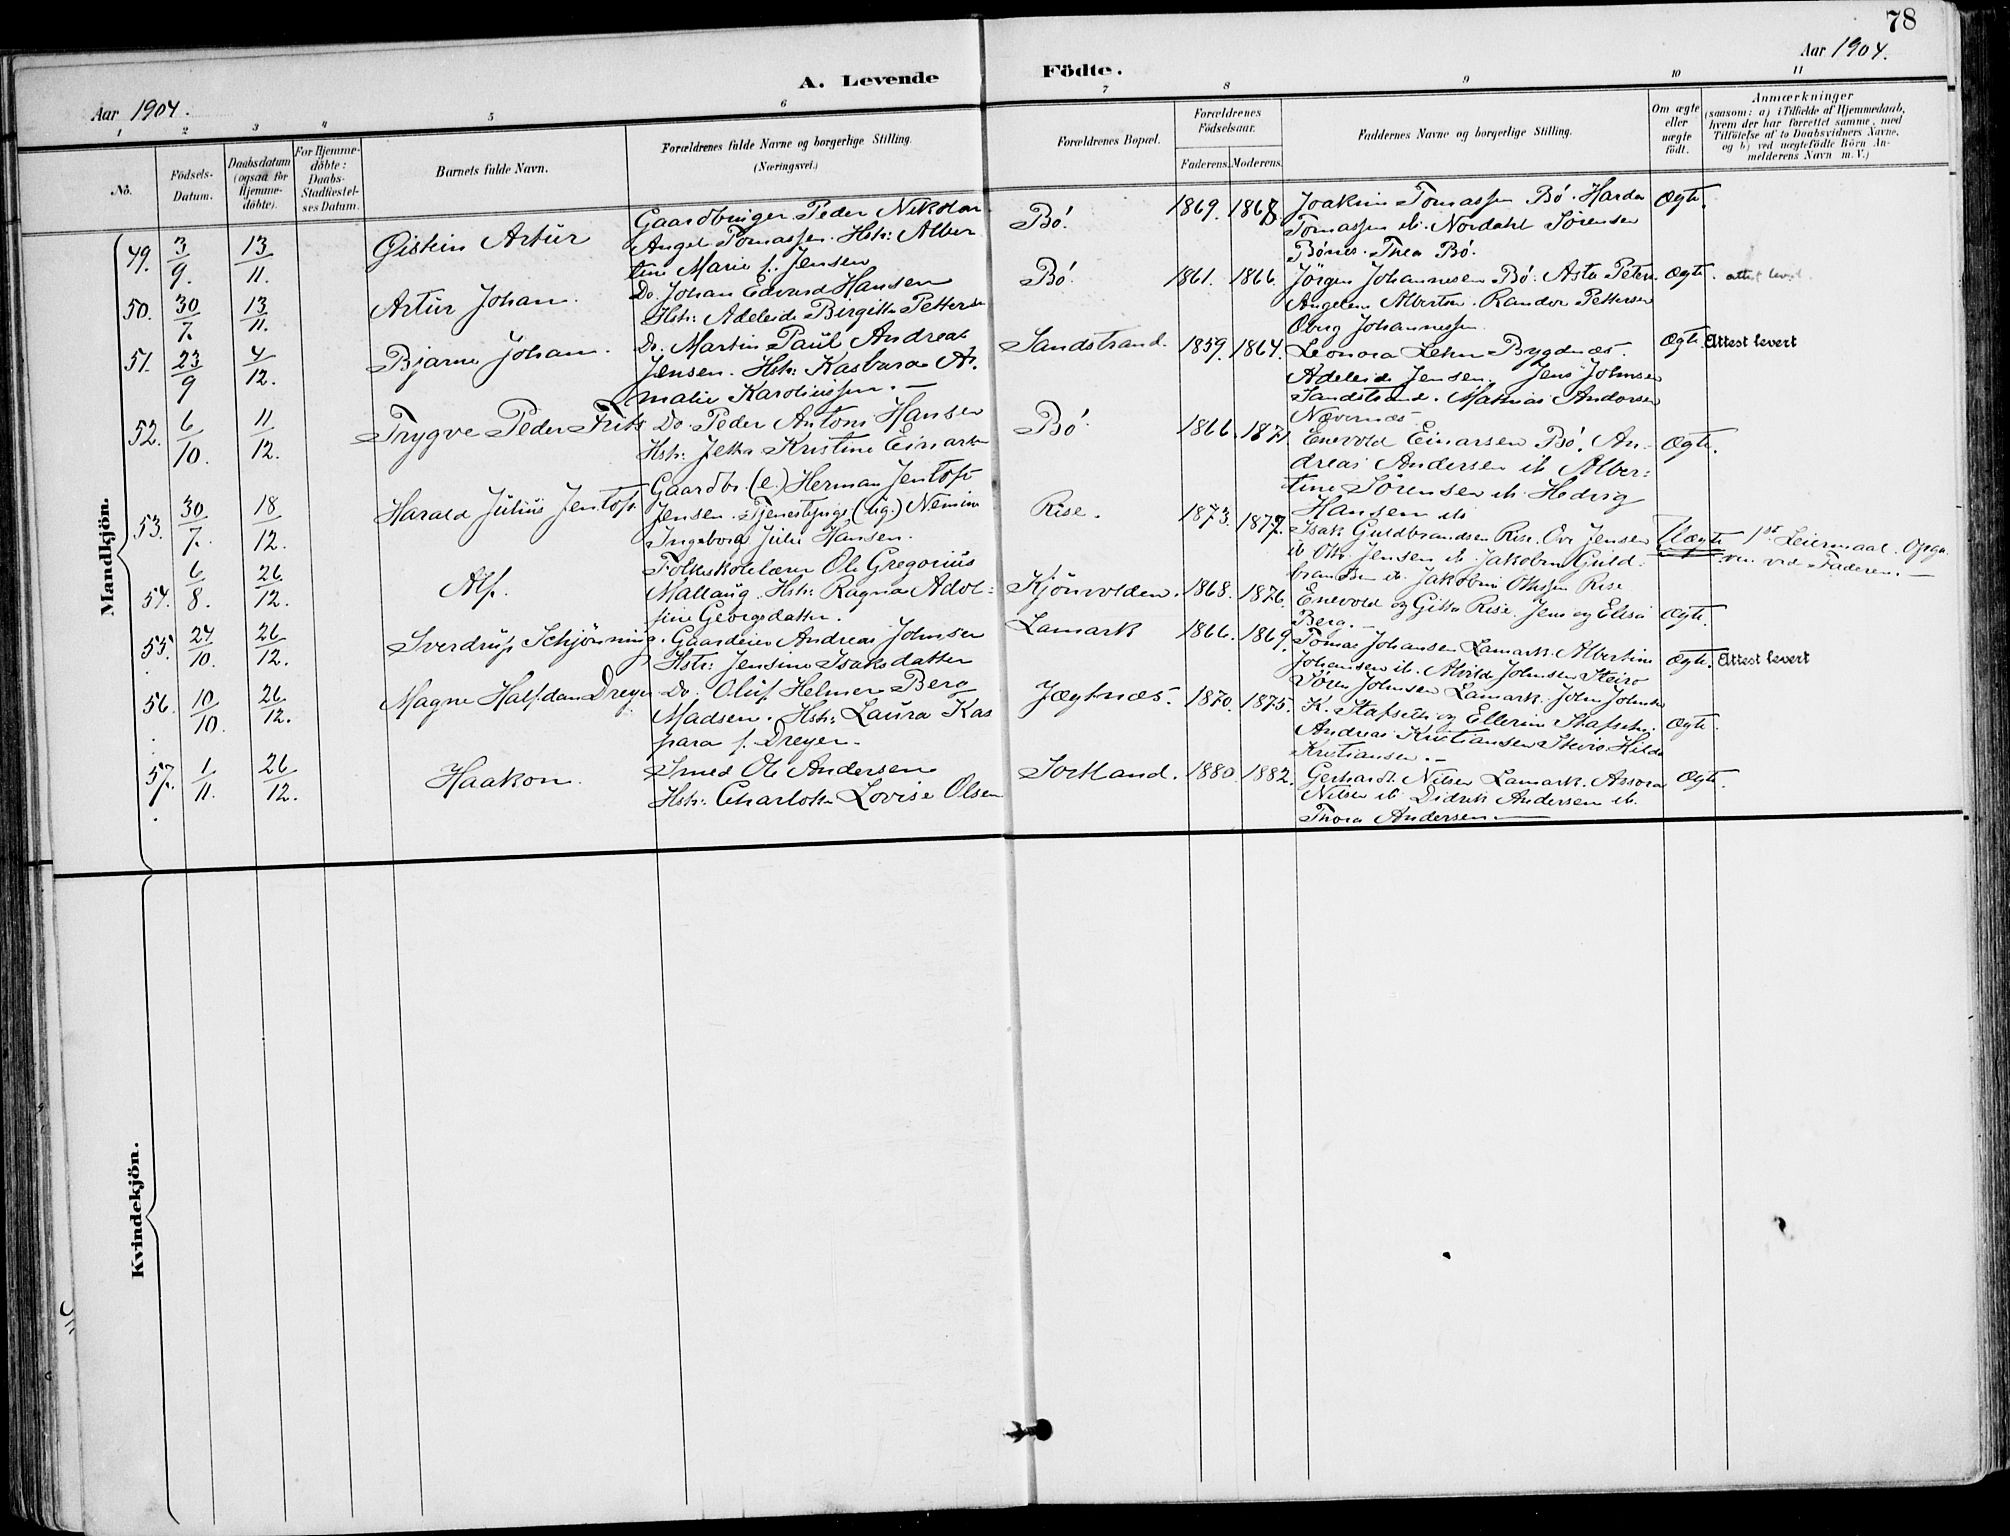 78
Aar 1904.
A. Levende Födte.
Aar 1904.
1 2 3 4 5 6 7 8 9 10 11
No.
Födsels-Datum.
Daabsdatum (ogsaa for Hjemme-döbte).
For Hjemme-döbte: Daabs-Stadfæstel-ses Datum.
Barnets fulde Navn.
Forældrenes fulde Navne og borgerlige Stilling.
(Næringsvei.)
Forældrenes Bopæl.
Forældrenes Födselsaar.
Faderens. Moderens.
Faddernes Navne og borgerlige Stilling.
Om ægte eller uægte födt.
Anmærkninger
(saasom: a) i Tilfælde af Hjemmedaab,
hvem der har forrettet samme, med
Tilföielse af to Daabsvidners Navne,
og b) ved uægtefödte Börn An-
melderens Navn m. V.)
Mandkjön.
49. 3/9. 13/11. Øistein Artür
Gaardbruger Peder Nikolai
Angel Tomassen. Hstr: Alber
tine Marie f. Jensen
Bö. 1869. 1868
Joakim Tomassen Bö. Harda
Tomassen ib. Nordahl Sörensen
Bönes. Thea Bö.
Ægte.
50. 30/7. 13/11. Artür Johan.
Do. Johan Edvard Hansen
Hstr: Adeleide Birgitte Petterse
Bö. 1861. 1866.
Jörgen Johannesen Bö. Asta Peters
Angelsen Albertsen. Randor Pettersen
Oberg Johannessen
Ægte. attest levert
51. 23/9 4/12. Bjarne Johan.
Do. Martin Paul Andreas
Jensen. Hstr: Kasbara A.
malie Karoliussen. —
Sandstrand. 1859. 1864.
Leonora Lehn Bygdnæs.
Adeleide Jensen. Jens Johnsen
Sandstrand. Mathias Andorsen
Nævernæs.
Ægte. Attest levert
52. 6/10. 11/12. Trygve Peder Frits
Do. Peder Antoni Hansen
Hstr: Jetha Kristine Einarsen
Bö. 1866. 1871.
Enevold Einarsen Bö. An-
dreas Andersen ib. Alber:
tine Sörensen ib. Hedvig
Hansen ib
Ægte.
53. 30/7. 18/12. Harald Julius Jentoft
Gaardbr. (e.) Herman Jentoft
Jensen. Tjenestepige (ug.) Nemine
Ingeborg Julie Hansen.
Rise. 1873. 1877.
Isak Guldbrandsen Rise. Ove Jensen
ib. Otto Jensen ib. Jakobine Guld.
brandsen ib. Jakobine Ottesen Rise
Uægte. 1st Leiermaal. Opgi.
ven ved Faderen. —
54. 6/8. 26/12. Alf.
Folkeskolelærer Ole Gregorius
Mallaug. Hstr: Ragna Adol:
fine Georgsdatter.
Kjönvolden. 1868. 1876.
Enevold og Gitta Rise. Jens og Elisa
Berg. —
Ægte.
55. 27/10. 26/12. Sverdrup Schjönning.
Gaardeier Andreas Johnsen
Hstr: Jensine Isaksdatter
Lamark 1866. 1869.
Tomas Johansen Lamark. Albertine
Johansen ib. Alvilde Johnsen Steiro
Sören Johnsen Lamark. John Johnsen
Ægte. Attest levert
56. 10/10. 26/12. Magne Halfdan Dreyer
Do. Oluf Helmer Berg
Madsen. Hstr: Laura Kas
para f. Dreyer.
Jægtnæs. 1870. 1875.
K. Stafseth og Ellerine Stafseth.
Andreas Kristiansen Steiro. Hilda
Kristiansen. —
Ægte.
57. 1/11. 26/12. Haakon.
Smed Ole Andersen
Hstr: Charlotte Lovise Olsen
Sortland. 1880. 1882.
Gerhardt Nilsen Lamark. Assora
Nilsen ib. Didrik Andersen ib.
Thora Andersen —
Ægte.
Kvindekjön.